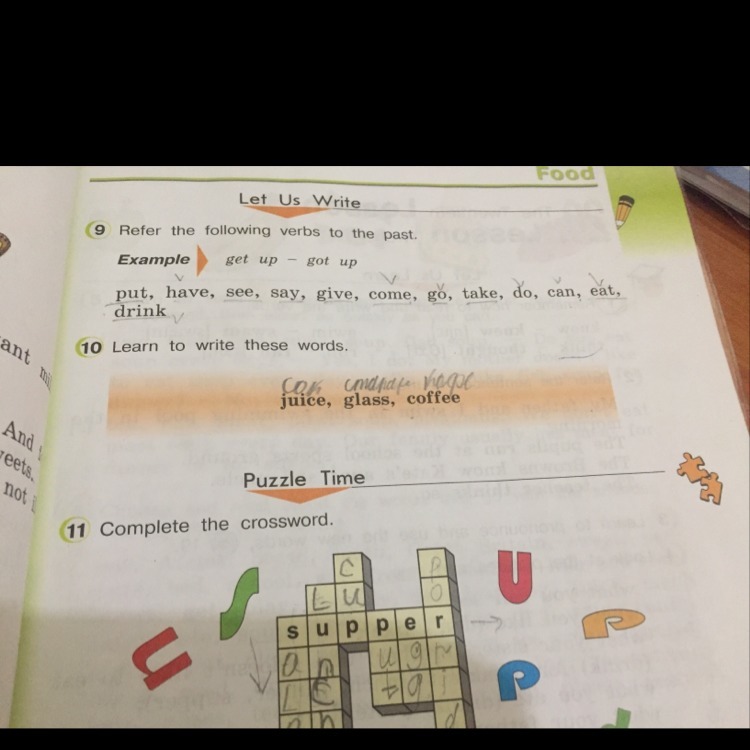 Food
Let Us Write
9 Refer the following verbs to the past.
Example get up – got up
put, have, see, say, give, come, go, take, do, can, eat,
drink
10 Learn to write these words.
juice, glass, coffee
Puzzle Time
11 Complete the crossword.
c p
t u o
s u p p e r
a n u g r
l t g i
n d
U
P
P
ant
And
eets.
not